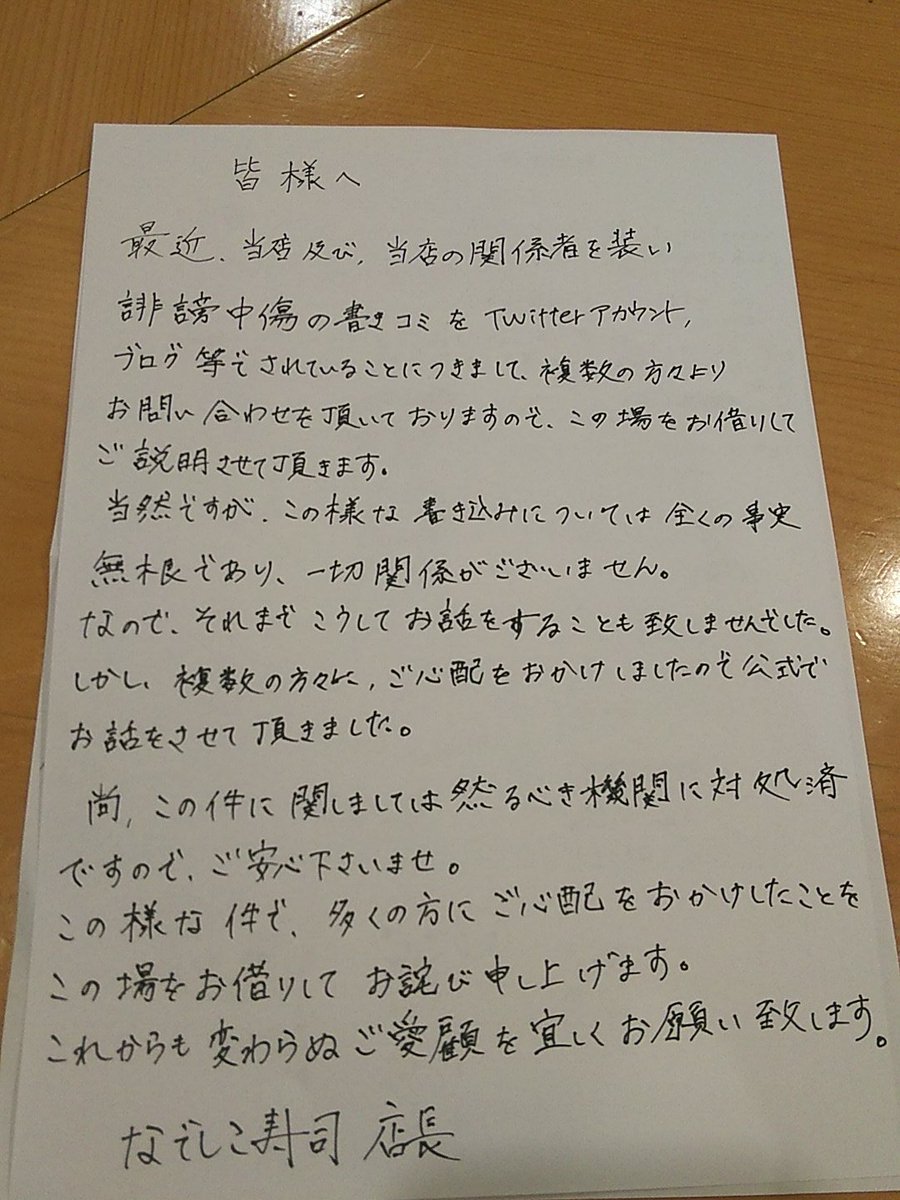 皆様へ
最近、当店及び、当店の関係者を装い
誹謗中傷の書きコミを Twitterアカウント,
ブログ等でされていることにつきまして、複数の方々より
お問い合わせを頂いておりますので、この場をお借りして
ご説明させて頂きます。
当然ですが、この様な書き込みについては全くの事実
無根であり、一切関係がございません。
なので、それまでこうしてお話をすることも致しませんでした。
しかし、複数の方々に、ご心配をおかけしましたので公式で
お話をさせて頂きました。
尚,この件に関しましては然るべき機関に対処済
ですので、ご安心下さいませ。
この様な件で、多くの方にご心配をおかけしたことを
この場をお借りしてお詫び申し上げます。
これからも変わらぬご愛顧を宜しくお願い致します。
なでしこ寿司 店長